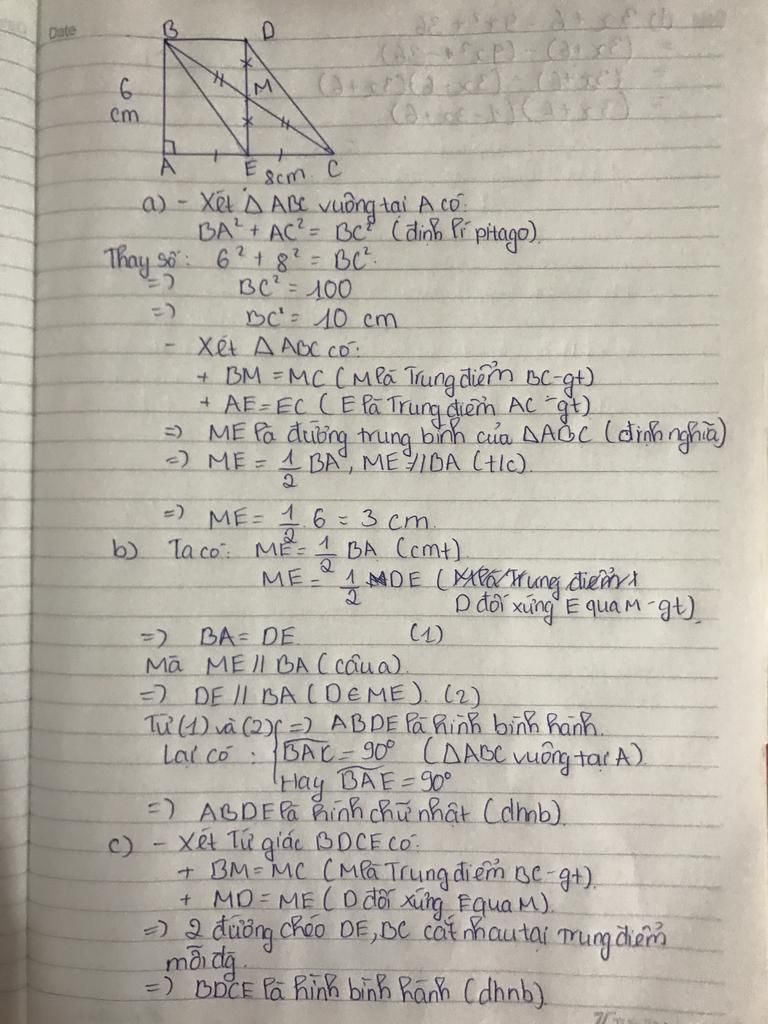 Date
B D
6
cm
M
A E C
8cm
a) - Xét Δ ABC vuông tại A có:
BA² + AC² = BC² (định lí pitago)
Thay số: 6² + 8² = BC²
=> BC² = 100
=> BC = 10 cm
- Xét Δ ABC có:
+ BM = MC (M là Trung điểm BC-gt)
+ AE = EC (E là Trung điểm AC-gt)
=> ME là đường trung bình của ΔABC (định nghĩa)
=> ME = 1/2 BA, ME // BA (t/c)
=> ME = 1/2 . 6 = 3 cm.
b) Ta có: ME = 1/2 BA (cmt)
ME = 1/2 DE (
D đối xứng E qua M-gt)
=> BA = DE. (1)
Mà ME // BA (câu a)
=> DE // BA (D∈ME). (2)
Từ (1) và (2) => ABDE là hình bình hành.
Lại có : BAC = 90° (ΔABC vuông tại A)
Hay BAE = 90°
=> ABDE là hình chữ nhật (dhnb).
c) - Xét Tứ giác BDCE có:
+ BM = MC (M là Trung điểm BC-gt)
+ MD = ME (D đối xứng E qua M).
=> 2 đường chéo DE, BC cắt nhau tại trung điểm
mỗi đg.
=> BDCE là hình bình hành (dhnb)